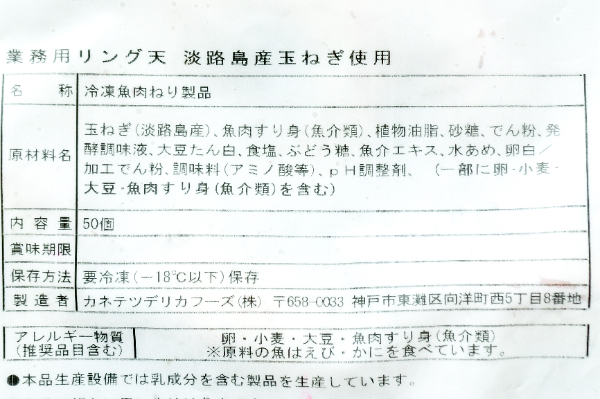 業務用リング天 淡路島産玉ねぎ使用
名称 冷凍魚肉ねり製品
原材料名 玉ねぎ(淡路島産)、魚肉すり身(魚介類)、植物油脂、砂糖、でん粉、発
酵調味液、大豆たん白、食塩、ぶどう糖、魚介エキス、水あめ、卵白/
加工でん粉、調味料(アミノ酸等)、pH調整剤、 (一部に卵・小麦・
大豆・魚肉すり身(魚介類)を含む)
内容量 50個
賞味期限
保存方法 要冷凍(-18℃以下)保存
製造者 カネテツデリカフーズ(株) 〒658-0033 神戸市東灘区向洋町西5丁目8番地
アレルギー物質 卵・小麦・大豆・魚肉すり身(魚介類)
(推奨品目含む) ※原料の魚はえび・かにを食べています。
●本品生産設備では乳成分を含む製品を生産しています。